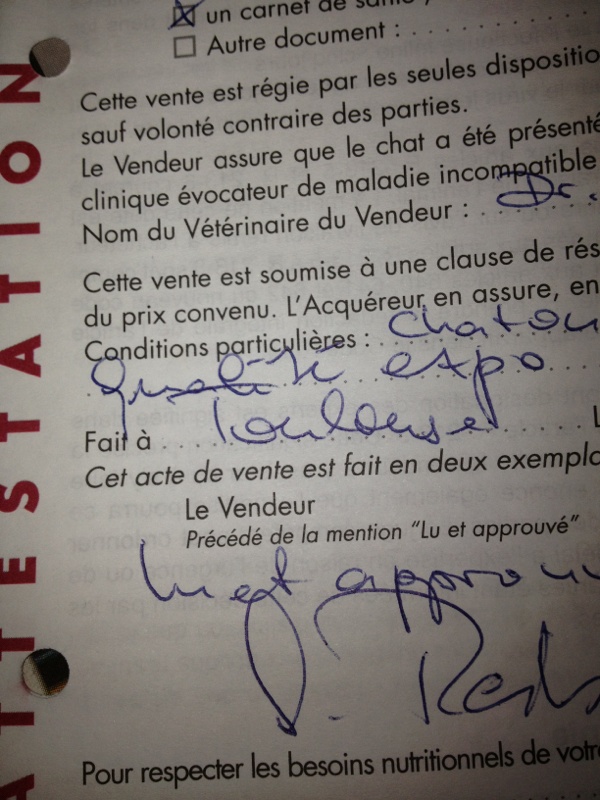 un carnet de santé,
Autre document :
Cette vente est régie par les seules dispositio
sauf volonté contraire des parties.
Le Vendeur assure que le chat a été présenté
clinique évocateur de maladie incompatible
Nom du Vétérinaire du Vendeur : Dr.
Cette vente est soumise à une clause de rés
du prix convenu. L'Acquéreur en assure, en
Conditions particulières : chaton
Qualité expo
Fait à Toulouse L
Cet acte de vente est fait en deux exempla
Le Vendeur
Précédé de la mention "Lu et approuvé"
Lu et approuv
Pour respecter les besoins nutritionnels de votr
ATTESTATION